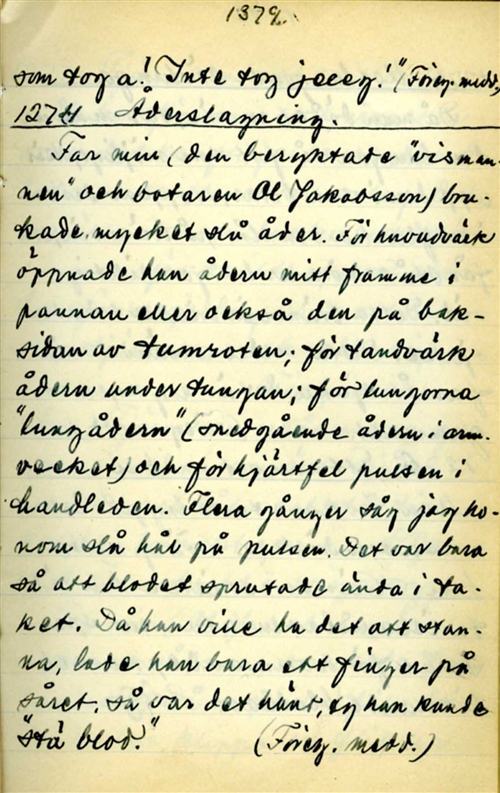 1379.
som tog a! Inte tog jeeeg!" (Föreg. medd.)
1274 Åderslagning.
Far min (den beryktade "visman-
nen" och botaren Ol Jakobsson) bru-
kade mycket slå åder. För huvudvärk
öppnade han ådern mitt framme i
pannan eller också den på bak-
sidan av tumroten; för tandvärk
ådern under tungan; för lungorna
"lungådern" (snedgående ådern i arm-
vecket) och för hjärtfel pulsen i
handleden. Flera gånger såg jag ho-
nom slå hål på pulsen. Det var bara
så att blodet sprutade ända i ta-
ket. Då han ville ha det att stan-
na, lade han bara ett finger på
såret, så var det hänt, ty han kunde
"stå blod." (Föreg. medd.)